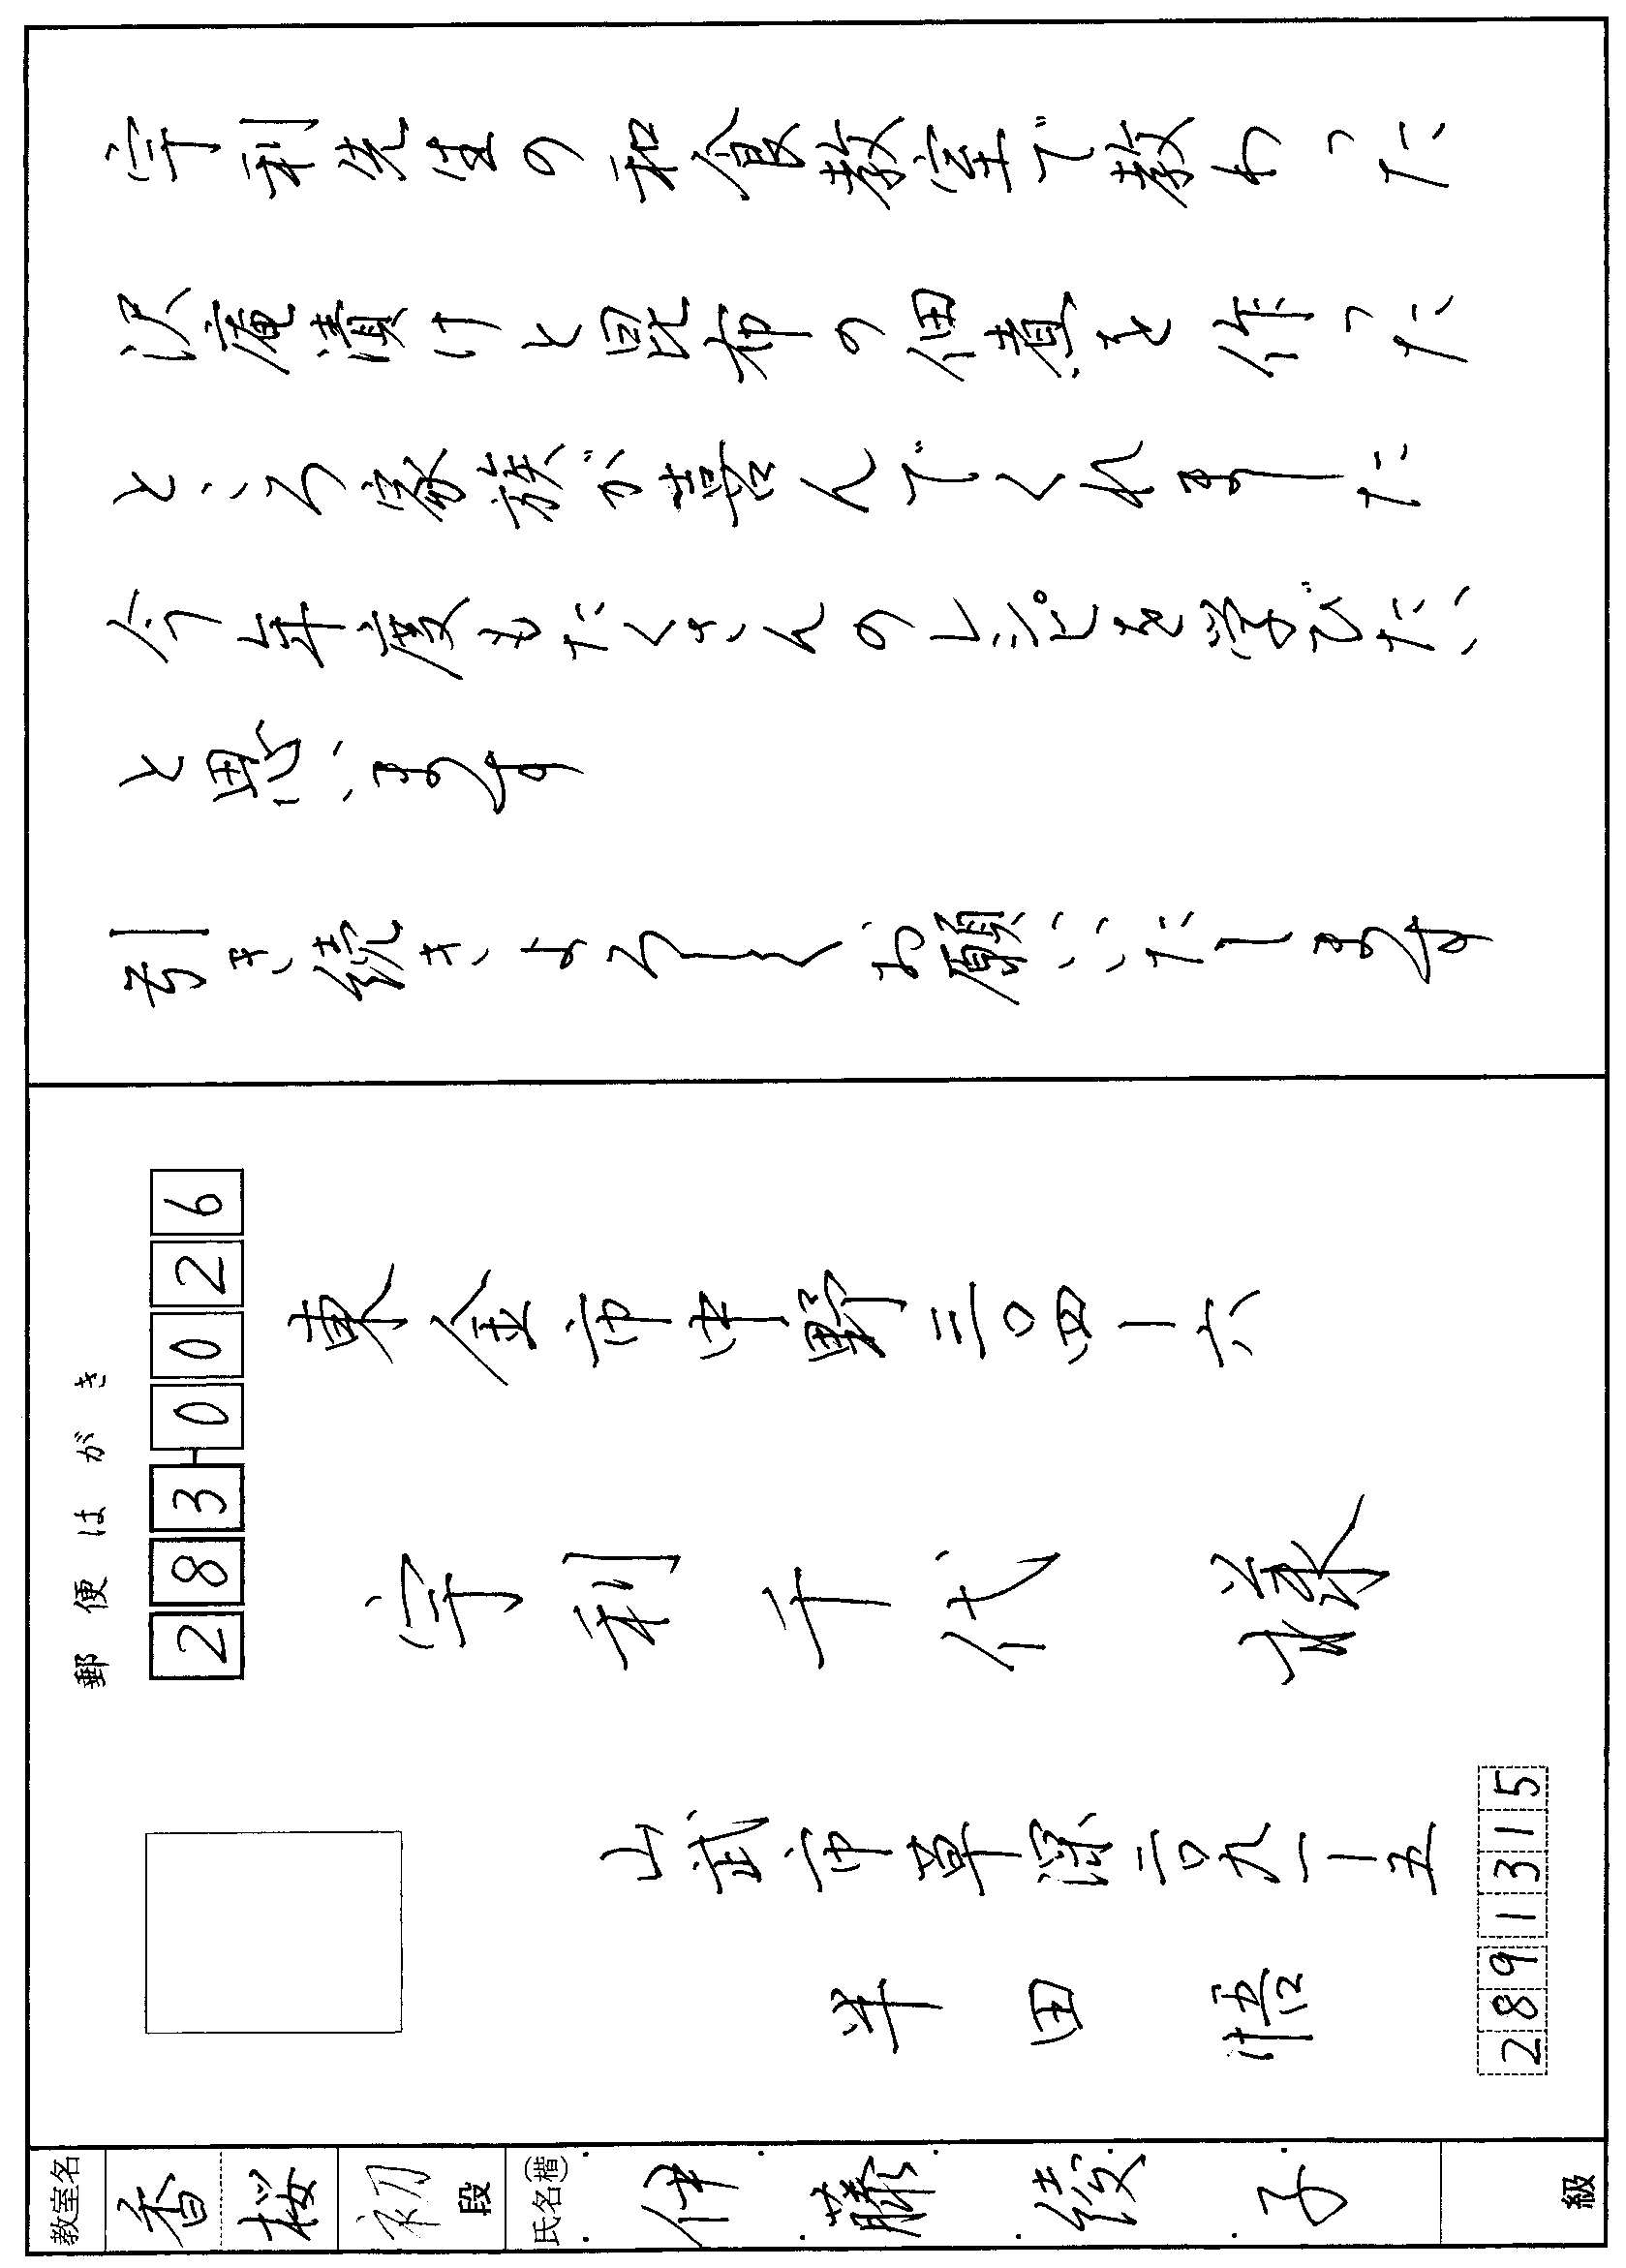 宇利先生の和食教室で教わった
沢庵漬けと昆布の佃煮を作った
ところ家族が喜んでくれました
今年度もたくさんのレシピを学びたい
と思います
引き続きよろしくお願いいたします
郵便はがき
283-0026
東金市中野三〇四-六
宇利千代 様
山武市草深二〇九一-五
半田 悟
289 1315
教室名
香桜
初段
氏名(楷)
伊藤綾子
級